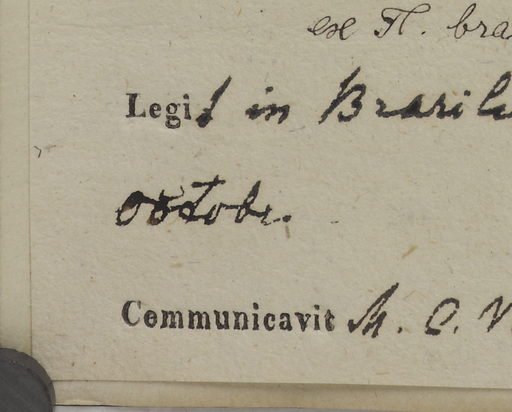 ex Fl. bra
Legit in Brasil
octobr.
Communicavit M. C.